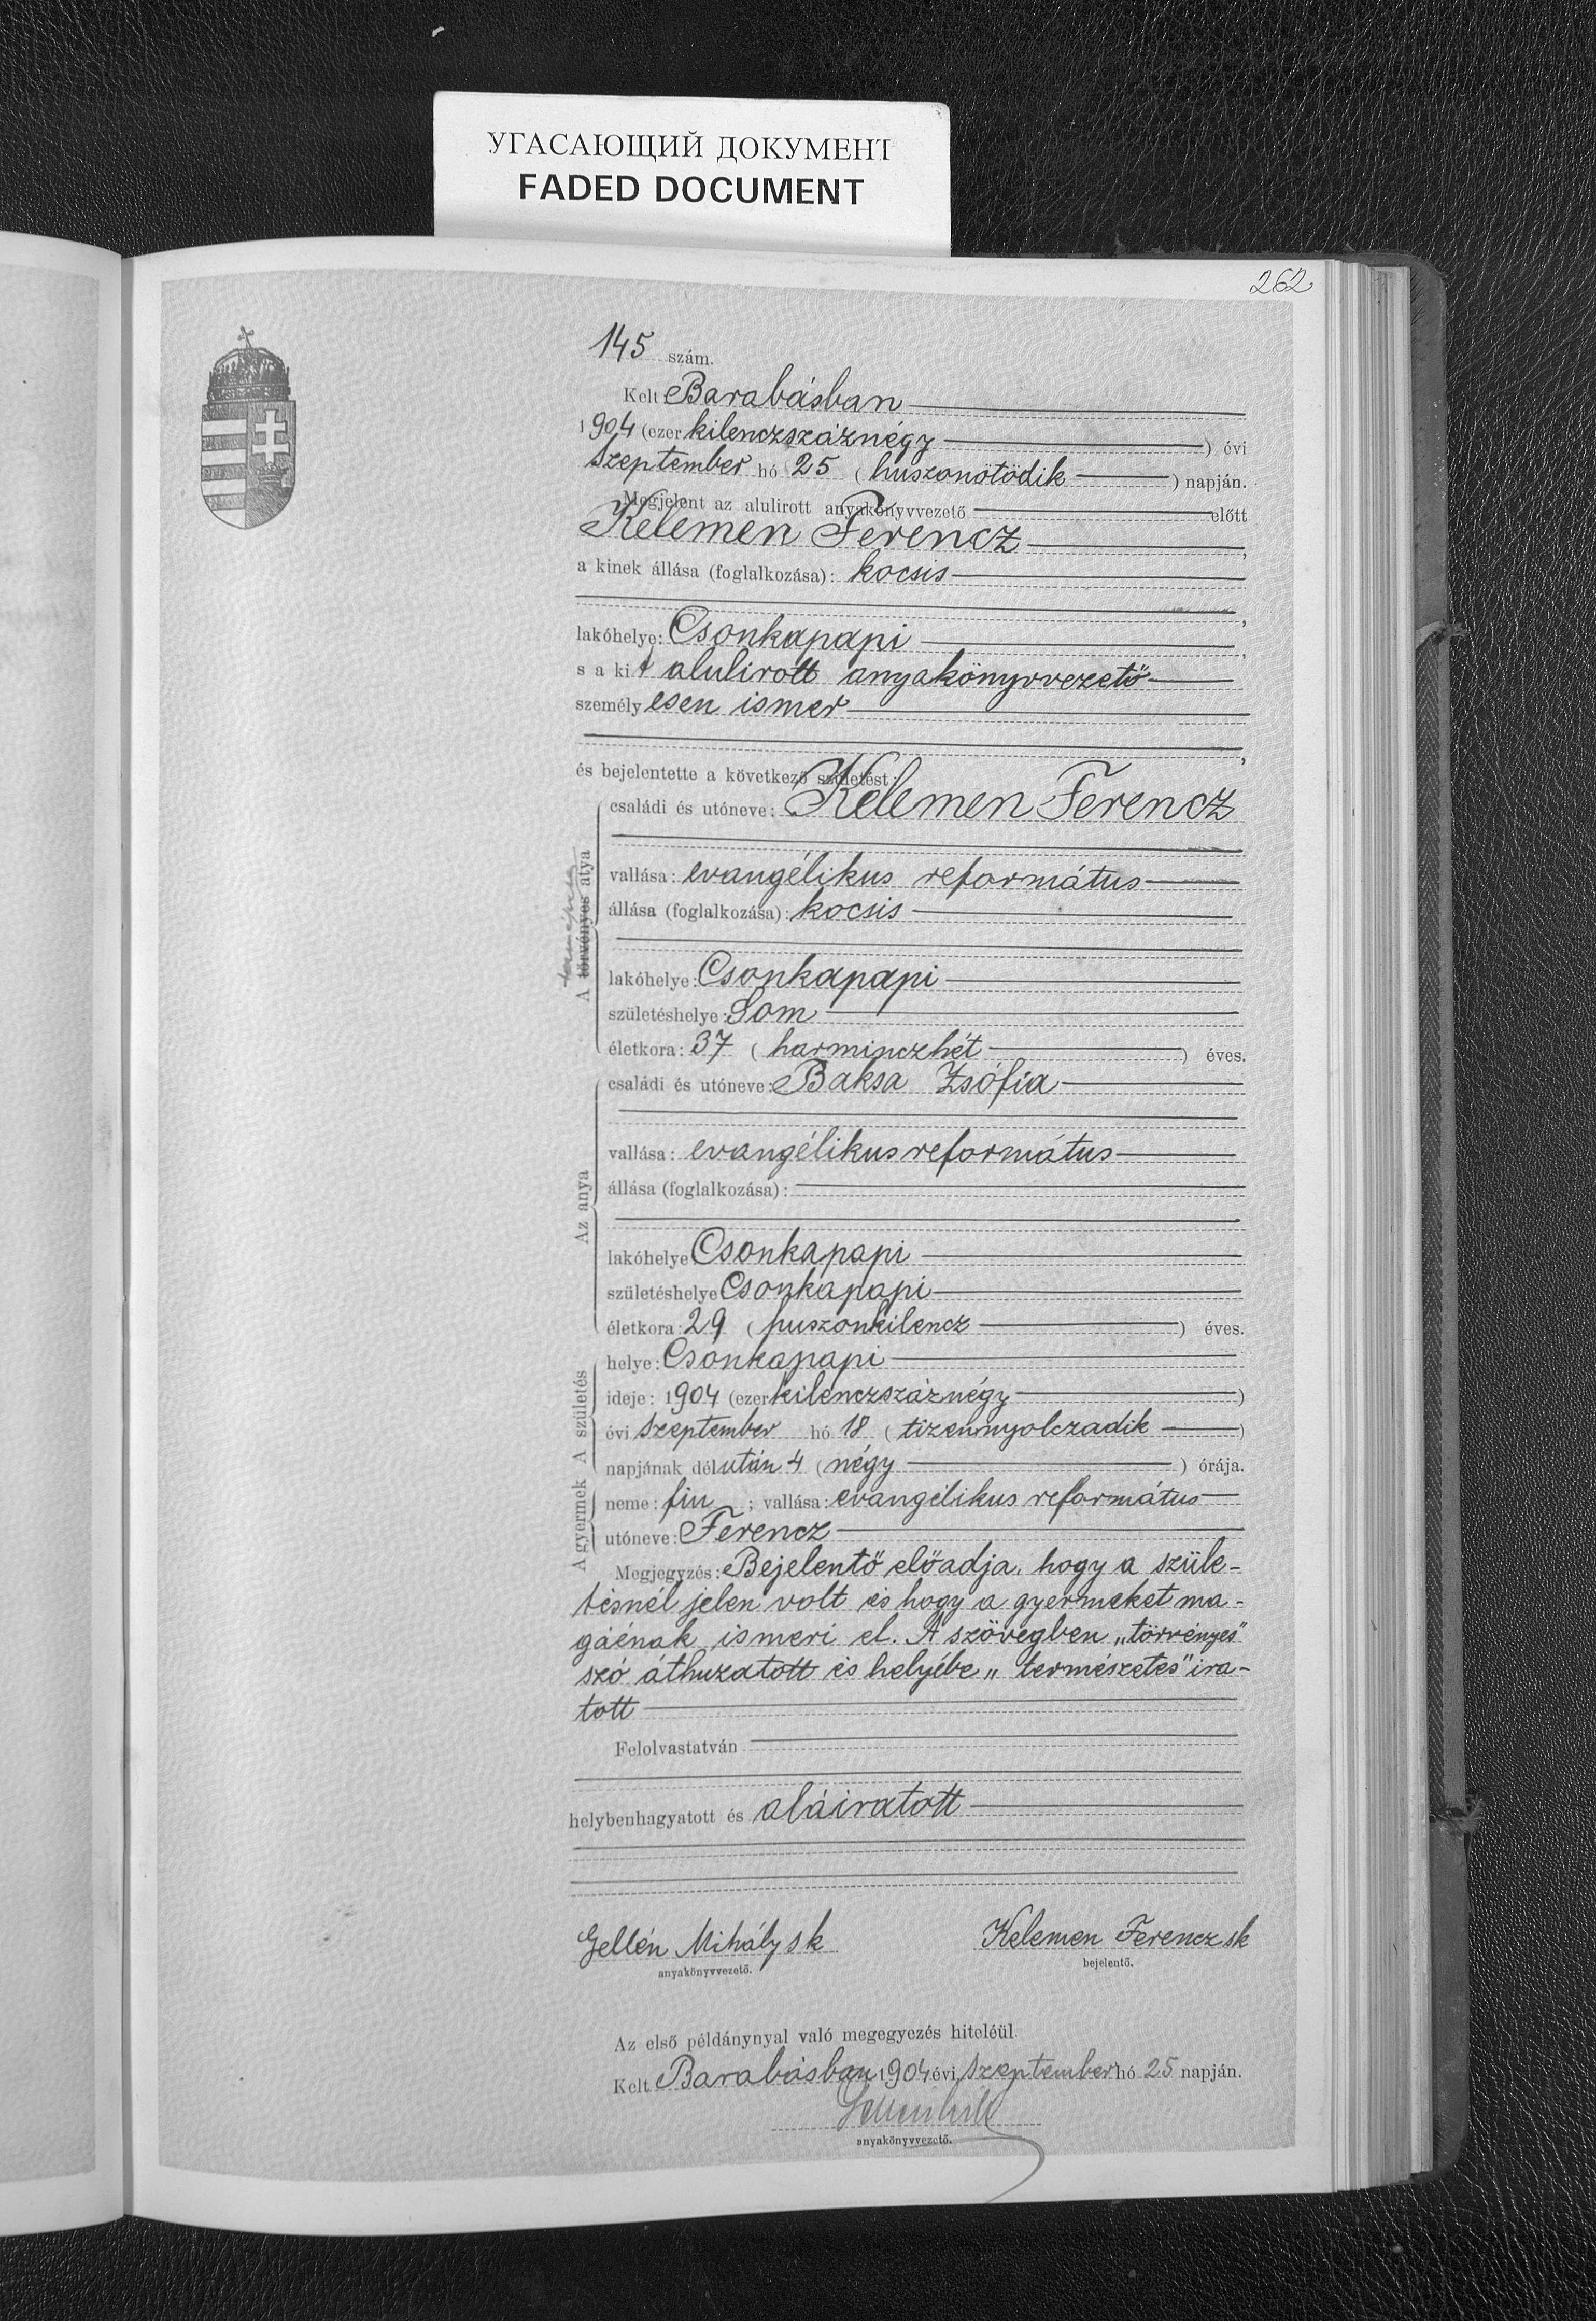 УГАСАЮЩИЙ ДОКУМЕНТ
FADED DOCUMENT
262
145 szám.
Kelt Barabásban
1904 (ezer kilenczszáznégy) évi
szeptember hó 25 (huszonötödik) napján.
Megjelent az alulirott anyakönyvvezető előtt
Kelemen Ferencz,
a kinek állása (foglalkozása): kocsis
,
lakóhelye: Csonkapapi,
s a kit alulirott anyakönyvvezető
személyesen ismer
,
és bejelentette a következő születést:
A törvényes atya
természetes
családi és utóneve: Kelemen Ferencz
vallása: evangélikus református
állása (foglalkozása): kocsis
lakóhelye: Csonkapapi
születéshelye: Som
életkora: 37 (harminczhét) éves.
Az anya
családi és utóneve: Baksa Zsófia
vallása: evangélikus református
állása (foglalkozása):
lakóhelye Csonkapapi
születéshelye Csonkapapi
életkora: 29 (huszonkilencz) éves.
A születés
helye: Csonkapapi
ideje: 1904 (ezer kilenczszáznégy)
évi szeptember hó 18 (tizennyolczadik)
napjának délután 4 (négy) órája.
A gyermek
neme: fiu; vallása: evangélikus református
utóneve: Ferencz
Megjegyzés: Bejelentő előadja, hogy a szüle-
tésnél jelen volt és hogy a gyermeket ma-
gáénak ismeri el. A szövegben „törvényes"
szó áthuzatott és helyébe „természetes" ira-
tott
Felolvastatván
helybenhagyatott és aláiratott
Gellén Mihály sk Kelemen Ferencz sk
anyakönyvvezető. bejelentő.
Az első példánynyal való megegyezés hiteléül.
Kelt Barabásban 1904 évi szeptember hó 25 napján.
anyakönyvvezető.